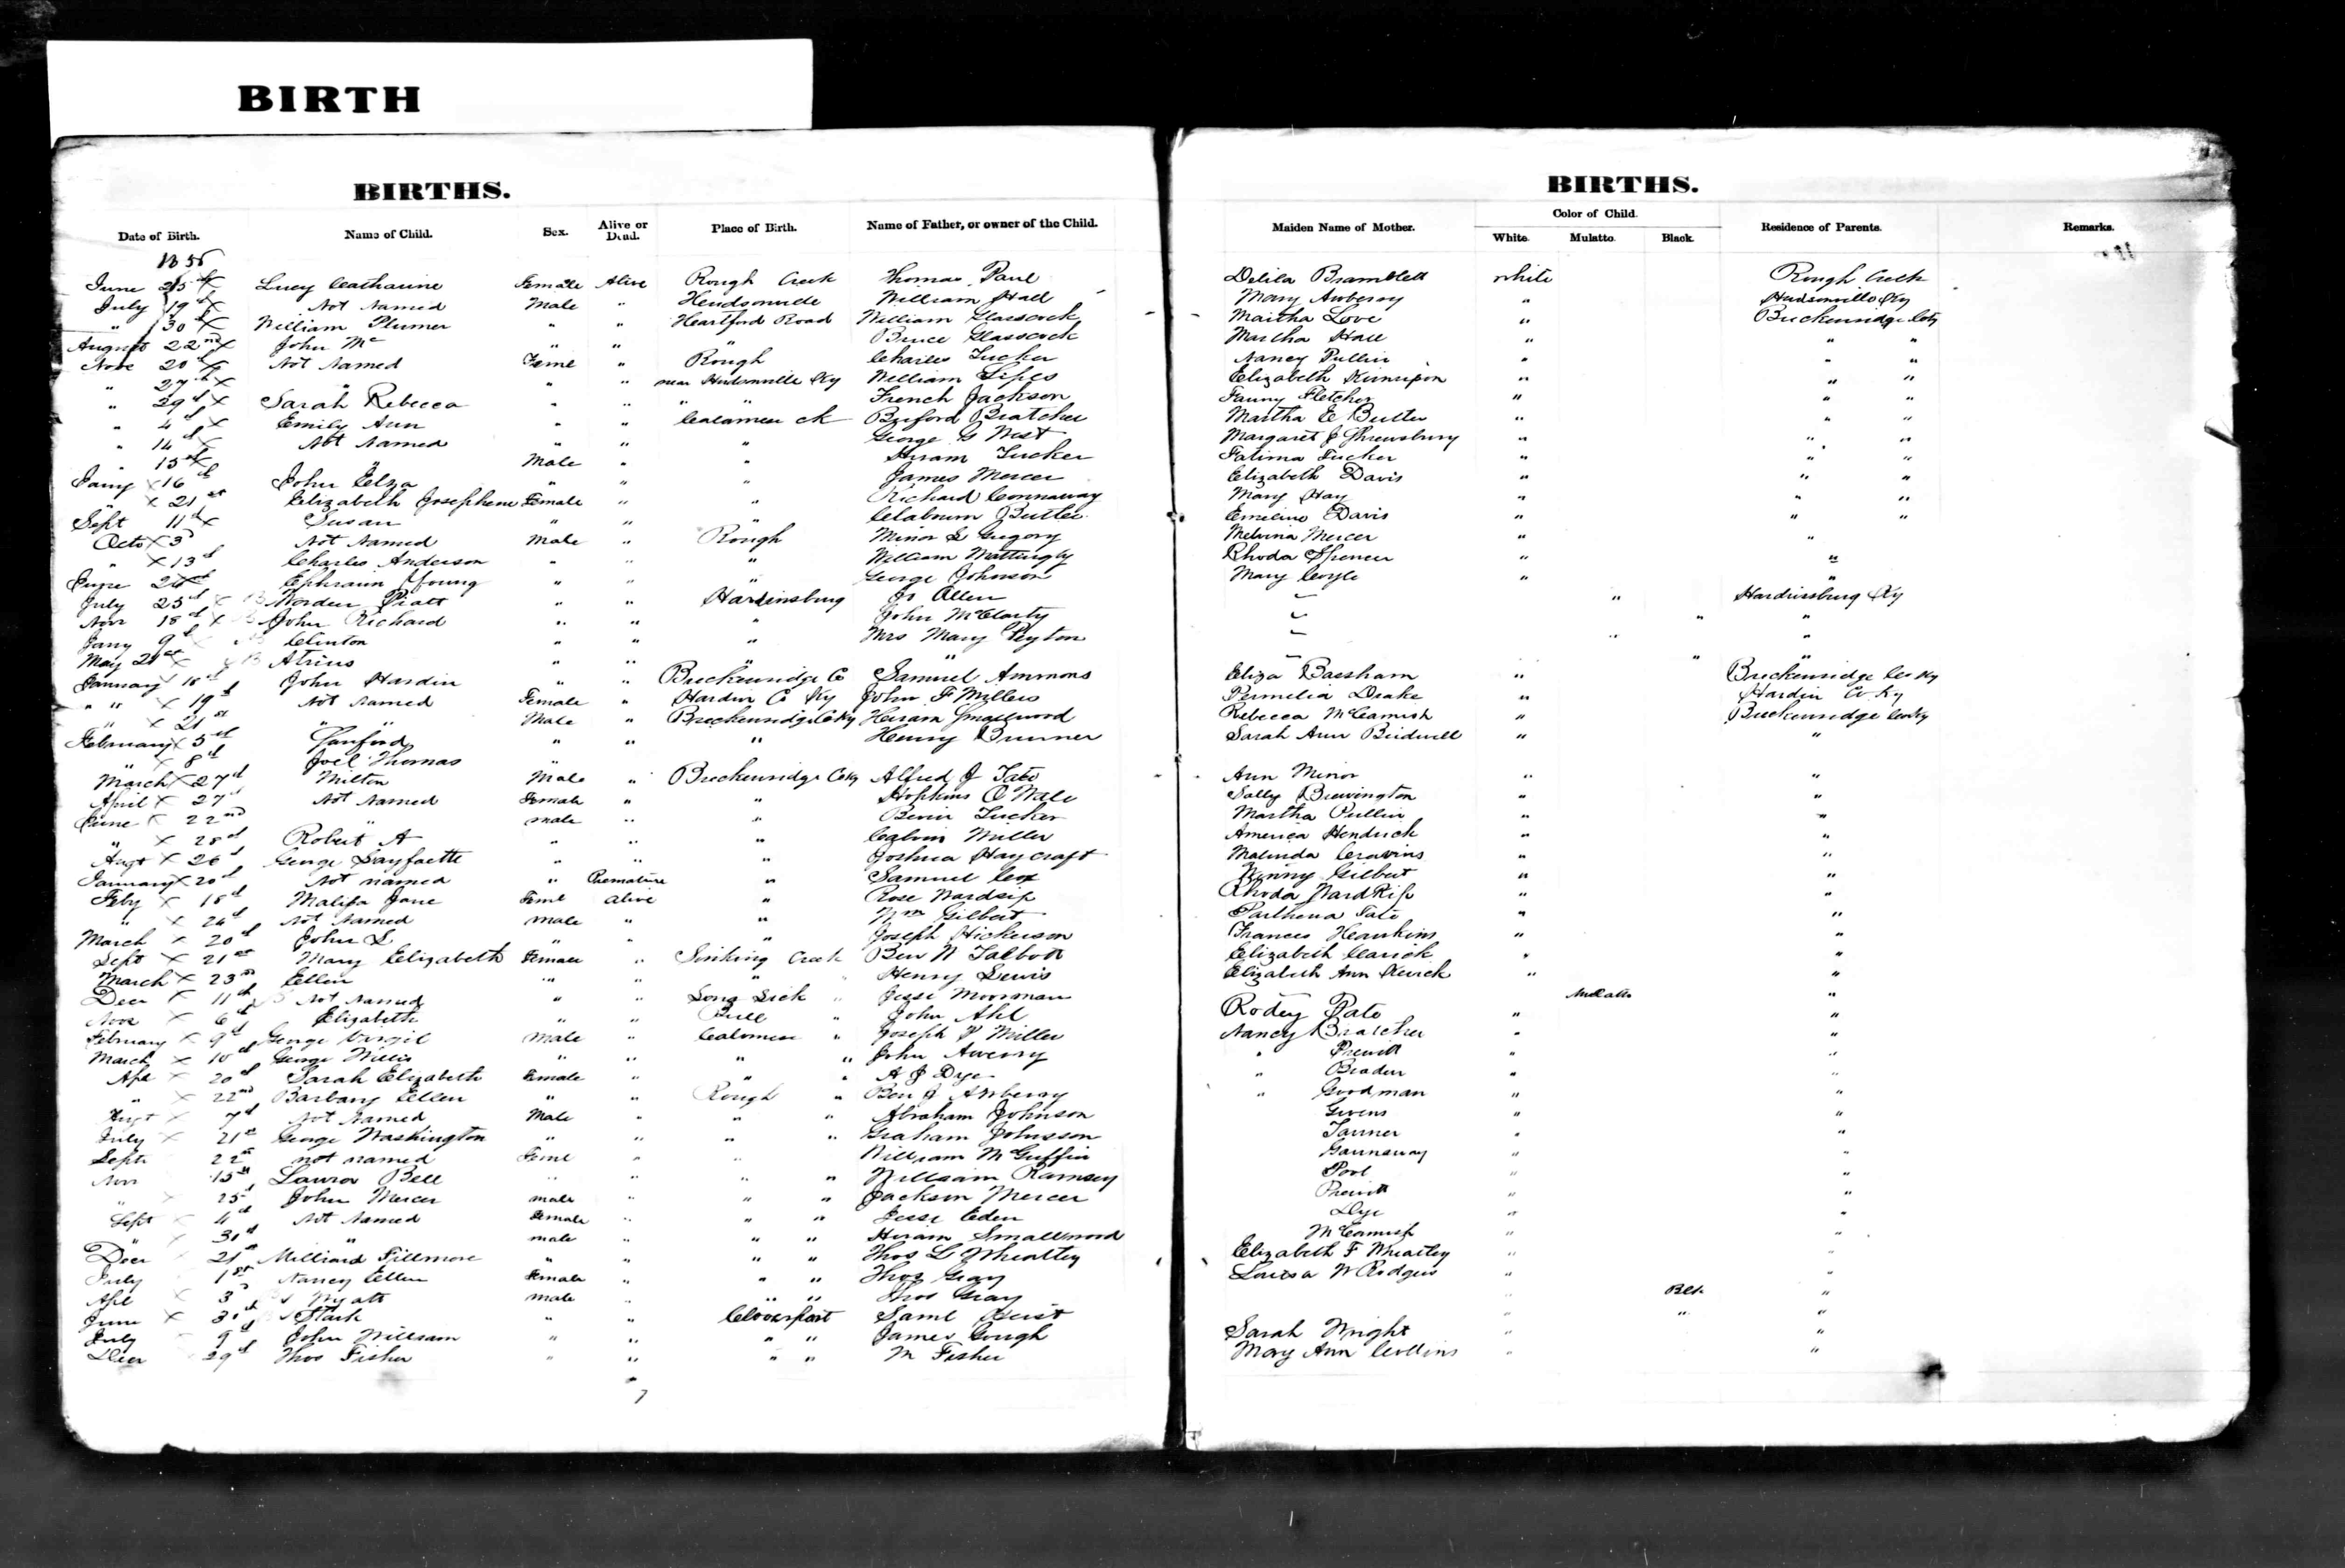 BIRTH
BIRTHS.
Date of Birth. Name of Child. Sex. Alive or Dead. Place of Birth. Name of Father, or owner of the Child.
June 25 Lucy Catharine Female Alive Rough Creek Thomas Paul
July 19 Not Named Male " Hudsonville William Hall
" 30 William Plumer " " Heartford Road William Glasscock
August 22nd John Mc " " " Bruce Glasscock
Nove 20 Not Named Feml " Rough Charles Tucker
" 27 " " " near Hudsonville Ky William Sipes
" 29 Sarah Rebecca " " " " French Jackson
" 4 Emily Ann " " Calamese ck Buford Bratcher
" 14 Not Named " " " George G West
" 15 " Male " " Hiram Tucker
Jany 16 John Elza " " " James Mercer
" 21st Elizabeth Josephene Female " " Richard Connaway
Sept 11 Susan " " " Claburn Butler
Octo 3 Not Named Male " Rough Minor L Gregory
" 13 Charles Anderson " " " William Mattingly
June Ephraim Young " " " George Johnson
July 25 Piatt " " Hardinsburg Allen
Novr 18 John Richard " " " John McClarty
Jany 9 Clinton " " " Mrs Mary Peyton
May " " " "
January John Hardin " " Breckenridge Co Samuel Ammons
" " 19 Not Named Female " Hardin Co Ky John F Millers
" 21st " " Male " Breckenridge Co Ky Hiram Smallwood
February 5 Sanford " " " Henry Bruner
" 8 Joel Thomas "
March 27 Milton Male " Breckenridge Co Ky Alfred J Tate
April 27 Not Named Female " " Hopkins
June 22nd " male " " Tucker
" 28 Robert A " " " Calvin Miller
Augt 26 George Layfaette " " " Joshua Haycraft
January 20 Not named " Premature " Samuel Cox
Feby 18 Jane Feml alive " Rose Wardrip
" 26 Not Named male " " Wm Gilbert
March 20 John S " " " Joseph Hickerson
Sept 21st Mary Elizabeth Female " Sinking Creek Ben W Talbott
March 23 Ellen " " " " Henry Lewis
Decr 11th Not Named " " Long Lick " Jesse Moorman
Nove 6 Elizabeth " " Bull " John Ahl
February 9 George Virgil male " Calomese " Joseph P Miller
March 10 George Willis " " " " John Aweny
Apl 20 Sarah Elizabeth Female " " " A J Dye
" 22nd Barbary Ellen " " Rough " Ben J
Augt 7 Not Named Male " " " Abraham Johnson
July 21st George Washington " " " " Graham Johnson
Sept 22 not named Feml " " William McGuffin
Nov 15 Laura Bell " " " " William Ramsey
" 25 John Mercer male " " " Jackson Mercer
Sept 4 Not Named Female " " " Jesse Eden
" " male " " " Hiram Smallwood
Decr 21st Milliard Fillmore " " " " Thos L Wheatley
July 1st Nancy Ellen Female " " " Thos Gray
Apl 3 Wyatt male " " " Thos Gray
June Stark " " Cloverport Saml
July 9 John William " " " " James Gough
Decr 29 Thos Fisher " " " " M Fisher
BIRTHS.
Maiden Name of Mother. Color of Child. White. Mulatto. Black. Residence of Parents. Remarks.
Delila Bramblett white Rough Creek
Mary " Hudsonville Ky
Martha Love " Breckenridge Cty
Martha Hall " " "
Nancy Pullin " " "
Elizabeth " " "
Fanny Fletcher " " "
Martha E Butler " " "
Margaret J Shrewsbury " " "
Fatima Tucker " " "
Elizabeth Davis " " "
Mary Hay " " "
Emeline Davis " " "
Melvina Mercer " "
Rhoda Spencer " "
Mary Coyle " "
" Hardinsburg Ky
" "
" "
" "
Eliza Bassham " Breckenridge Co Ky
Permelia Drake " Hardin Co Ky
Rebecca McCamish " Breckenridge Co Ky
Sarah Ann Bridwell " "
Ann Minor " "
Sally Brewington " "
Martha Pullin " "
America Hendrick " "
Malinda Cravins " "
Winny Gilbert " "
Rhoda Wardrip " "
Parthena Tate " "
Frances Hawkins " "
Elizabeth Carick " "
Elizabeth Ann " "
Mulatto "
Rodey Pate " "
Nancy Bratcher " "
" Prewitt " "
" Braden " "
" Goodman " "
Givens " "
Tanner " "
Gannaway " "
Pool " "
Prewitt " "
Dye " "
McCamish " "
Elizabeth F Wheatley " "
Louisa W Rodgers " "
" Blk "
" " "
Sarah Wright " "
Mary Ann Collins " "